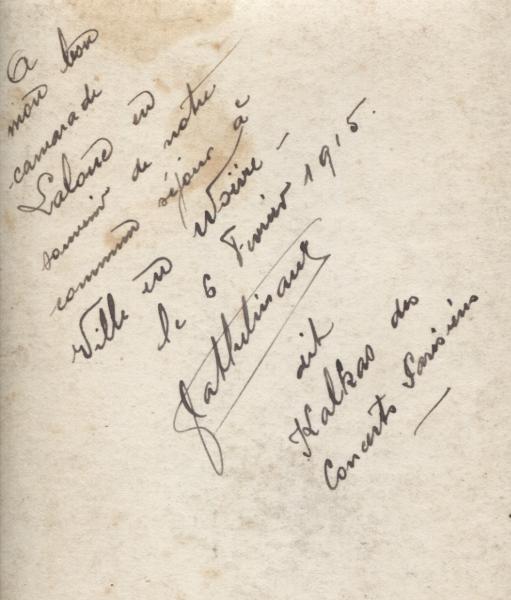 A
mon bon
camarade
Lalone en
souvenir de notre
commun séjour à
Ville en Woëvre –
le 6 Février 1915.
dit
Kalkas des
Concerts Parisiens